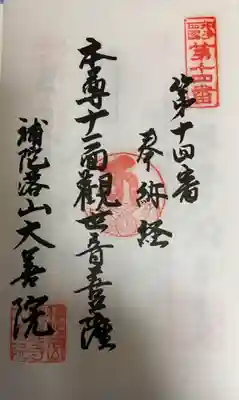 第十四番
第十四番
奉納経
本尊十一面觀世音菩薩
補陀落山大善院